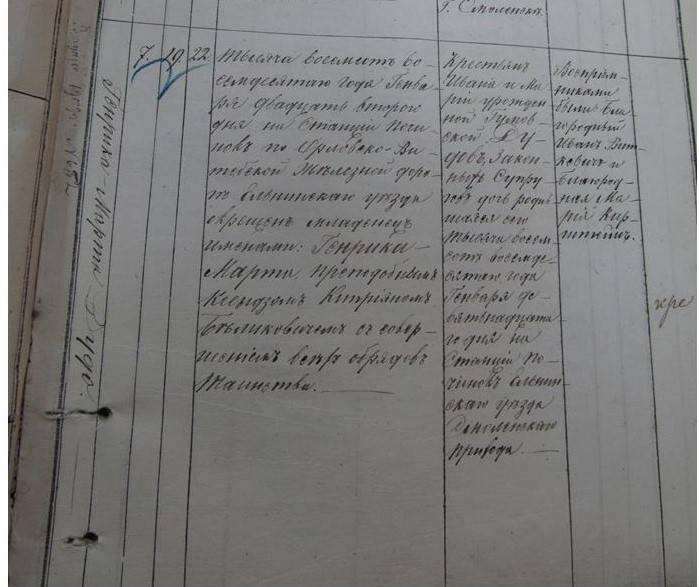 г. Смоленск.
Генрика-Марта Дудо.
7. 19. 22.
Тысяча восемсотъ во-
семдесятаго года Генва-
ря двадцать втораго
дня на Станціи Почи-
нокъ по Орловско-Ви-
тебской Желѣзной доро-
гѣ Ельнинскаго уѣзда
окрещенъ младенецъ
именами: Генрика-
Марта, преподобнымъ
Ксендзомъ Кипріяномъ
Бѣликовичемъ съ совер-
шеніемъ всѣхъ обрядовъ
Таинства.
Крестьянъ
Ивана и Ма-
ріи урожден-
ной
ской Ду-
довъ, закон-
ныхъ Супру-
говъ дочь родив-
шаяся сего
тысяча восем-
сотъ восемде-
сятаго года
Генваря де-
вятнадцата-
го дня на
Станціи По-
чинокъ Ельнин-
скаго уѣзда
Смоленскаго
прихода.
Воспріем-
никами
были: Бла-
городный
Иванъ Вит-
кевичъ и
Благород-
ная Ма-
рія
кре